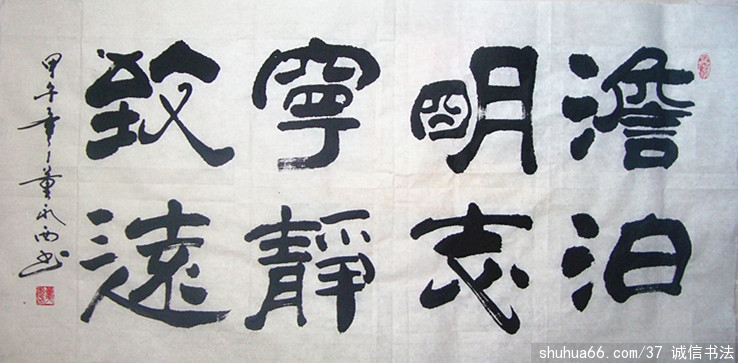 澹泊
明志
寧靜
致遠
甲午年董西书
shuhua66.com/37 诚信书法